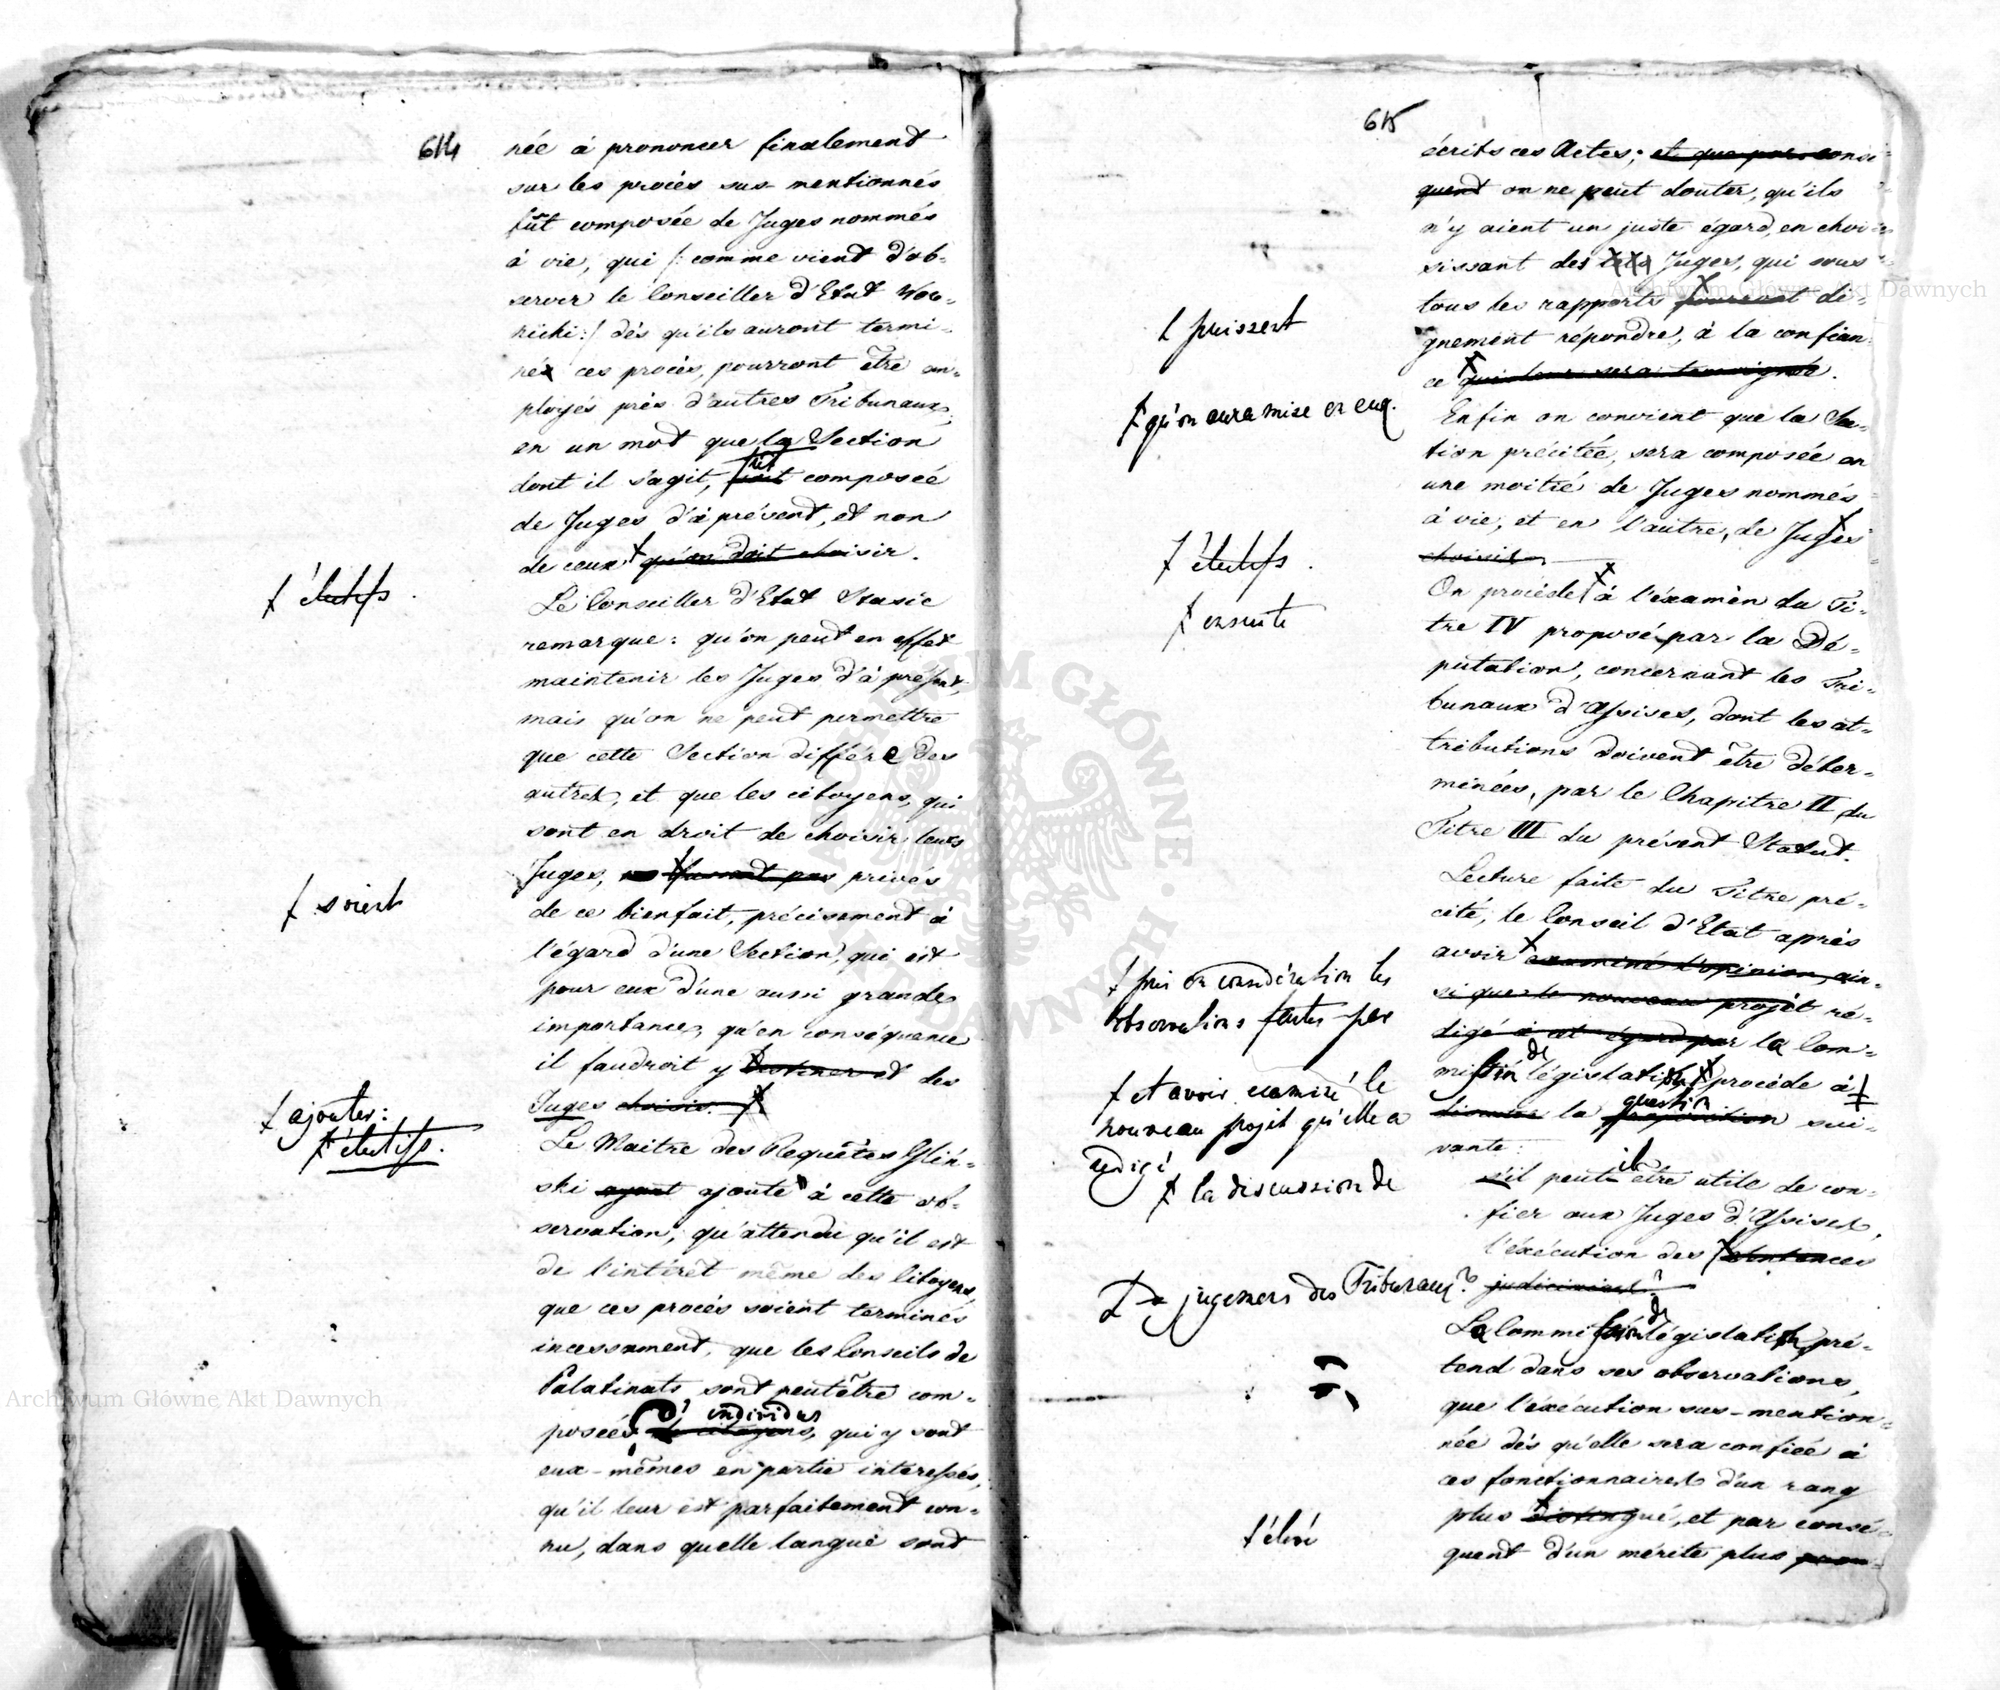 614
née à prononcer finalement
sur les procès sus-mentionnés
fût composée de Juges nommés
à vie, qui /: comme vient d'ob-
server le Conseiller d'Etat Wou-
:/ dès qu'ils auront termi-
nés ces procès, pourront être em-
ployés près d'autres Tribunaux,
en un mot que la Section
dont il s'agit, composée
de Juges d'à présent, et non
de ceux qu'on doit choisir.
Ɫ élutifs.
Le Conseiller d'Etat Stasic
remarque: qu'on peut en effet
maintenir les Juges d'à présent,
mais qu'on ne peut permettre
que cette Section diffère des
autres, et que les citoyens, qui
sont en droit de choisir leurs
Juges, ne fussent pas privés
Ɫ soient
de ce bienfait, précisement à
l'égard d'une Section, qui est
pour eux d'une aussi grande
importance, qu'en conséquence
il faudroit y et des
Juges choisis.
Ɫ ajouter:
Ɫ élutifs.
Le Maitre des Requêtes Gliń-
ski ayant ajoute à cette ob-
servation, qu'attendu qu'il est
de l'intérêt même des Citoyens,
que ces procès soient terminés
incessament, que les Conseils de
Palatinats, sont peutêtre com-
posés d'individus de citoyens, qui y sont
eux-mêmes en partie interessés,
qu'il leur est parfaitement con-
nu, dans quelle langue sont
615
écrits ces Actes; et que par consé-
quent on ne peut douter, qu'ils
n'y aient un juste égard, en choi-
sissant des tels Juges, qui sous
tous les rapports pourront di-
Ɫ puissent
gnement répondre, à la confian-
ce qui leur sera temoignée.
Ɫ qu'on aura mise en eux.
Enfin on convient que la Sec-
tion précitée, sera composée en
une moitié de Juges nommés
à vie, et en l'autre, de Juges
choisis.
Ɫ élutifs.
On procède à l'éxamèn du Ti-
Ɫ ensuite
tre IV proposé par la Dé-
putation, concernant les Tri-
bunaux d'Assises, dont les at-
tributions doivent être déter-
minées, par le Chapitre II du
Titre III du présent Statut.
Lecture faite du Titre pré-
cité, le Conseil d'Etat après
avoir examiné l'opinion, ain-
si que le nouveau projet ré-
digé à cet égard par la Com-
Ɫ pris en considération les
observations faites par
mission de législation procède à
Ɫ et avoir examiné le
nouveau projet qu'elle a
redigé
donner la question proposition sui-
vante:
Ɫ la discussion de
s'il peut-il être utile de con-
fier aux Juges d'Assises,
l'éxécution des sentences
judiciaires?
Ɫ jugemens des Tribunaux?
La Commission de législation pré-
tend dans ses observations,
que l'éxécution sus-mention-
née dès qu'elle sera confiée à
ces fonctionnaires d'un rang
plus distingué, et par consé-
Ɫ élevé
quent d'un mérite plus
Archiwum Główne Akt Dawnych
Archiwum Główne Akt Dawnych
ARCHIWUM GŁÓWNE AKT DAWNYCH